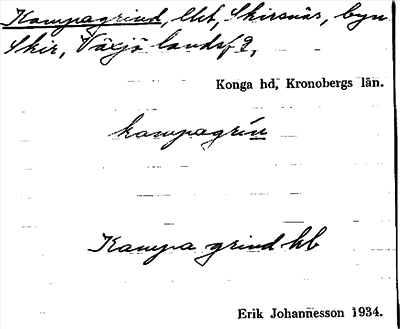 Kampagrind, lht, Skirsnäs, byn
Skir, Växjö landsf,
Konga hd, Kronobergs län.
kampagrín
Kampa grind hb
Erik Johannesson 1934.